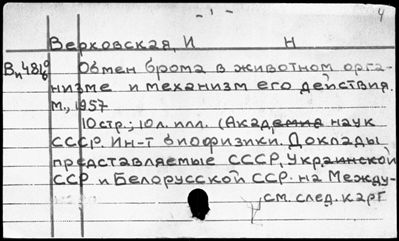 - 1 -
4
Верковская, И Н
Вп4816 Обмен брома в животном орга-
низме и механизм его действия.
М., 1957
10 стр.; 10 л. илл. (Академия наук
СССР. Ин-т биофизики. Доклады,
представляемые СССР, Украинской
ССР и Белорусской ССР. на Между-
см. след. карт